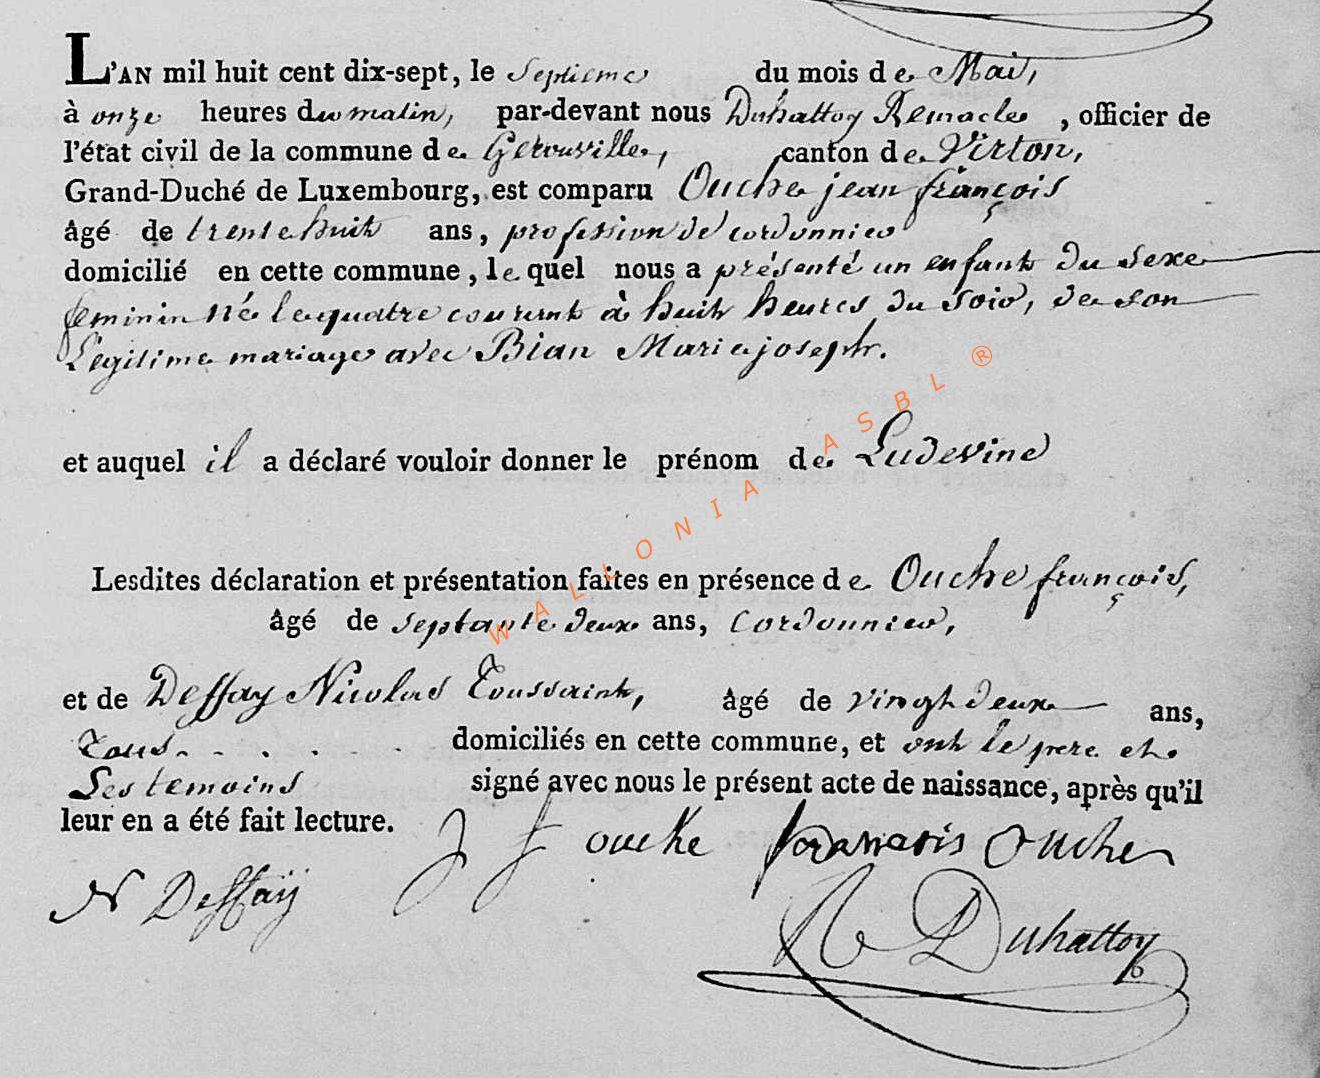 L'AN mil huit cent dix-sept, le Septieme du mois de Mai,
à onze heures du matin, par-devant nous Duhattoy Remacle, officier de
l'état civil de la commune de Gerouville, canton de Virton,
Grand-Duché de Luxembourg, est comparu Ouche jean françois
âgé de trente huit ans, profession de cordonnier
domicilié en cette commune, le quel nous a présenté un enfant du sexe
feminin né le quatre courant à huit heures du soir, de son
Légitime mariage avec Bian Marie joseph.
et auquel il a déclaré vouloir donner le prénom de Ludevine
Lesdites déclaration et présentation faites en présence de Ouche françois,
âgé de septante deux ans, Cordonnier,
et de Deffay Nicolas Toussaint, âgé de vingt deux ans,
Tous domiciliés en cette commune, et ont le pere et
Les temoins signé avec nous le présent acte de naissance, après qu'il
leur en a été fait lecture.
J f ouche franssois Ouche
N Deffaÿ
R Duhattoy
WALLONIA ASBL ®